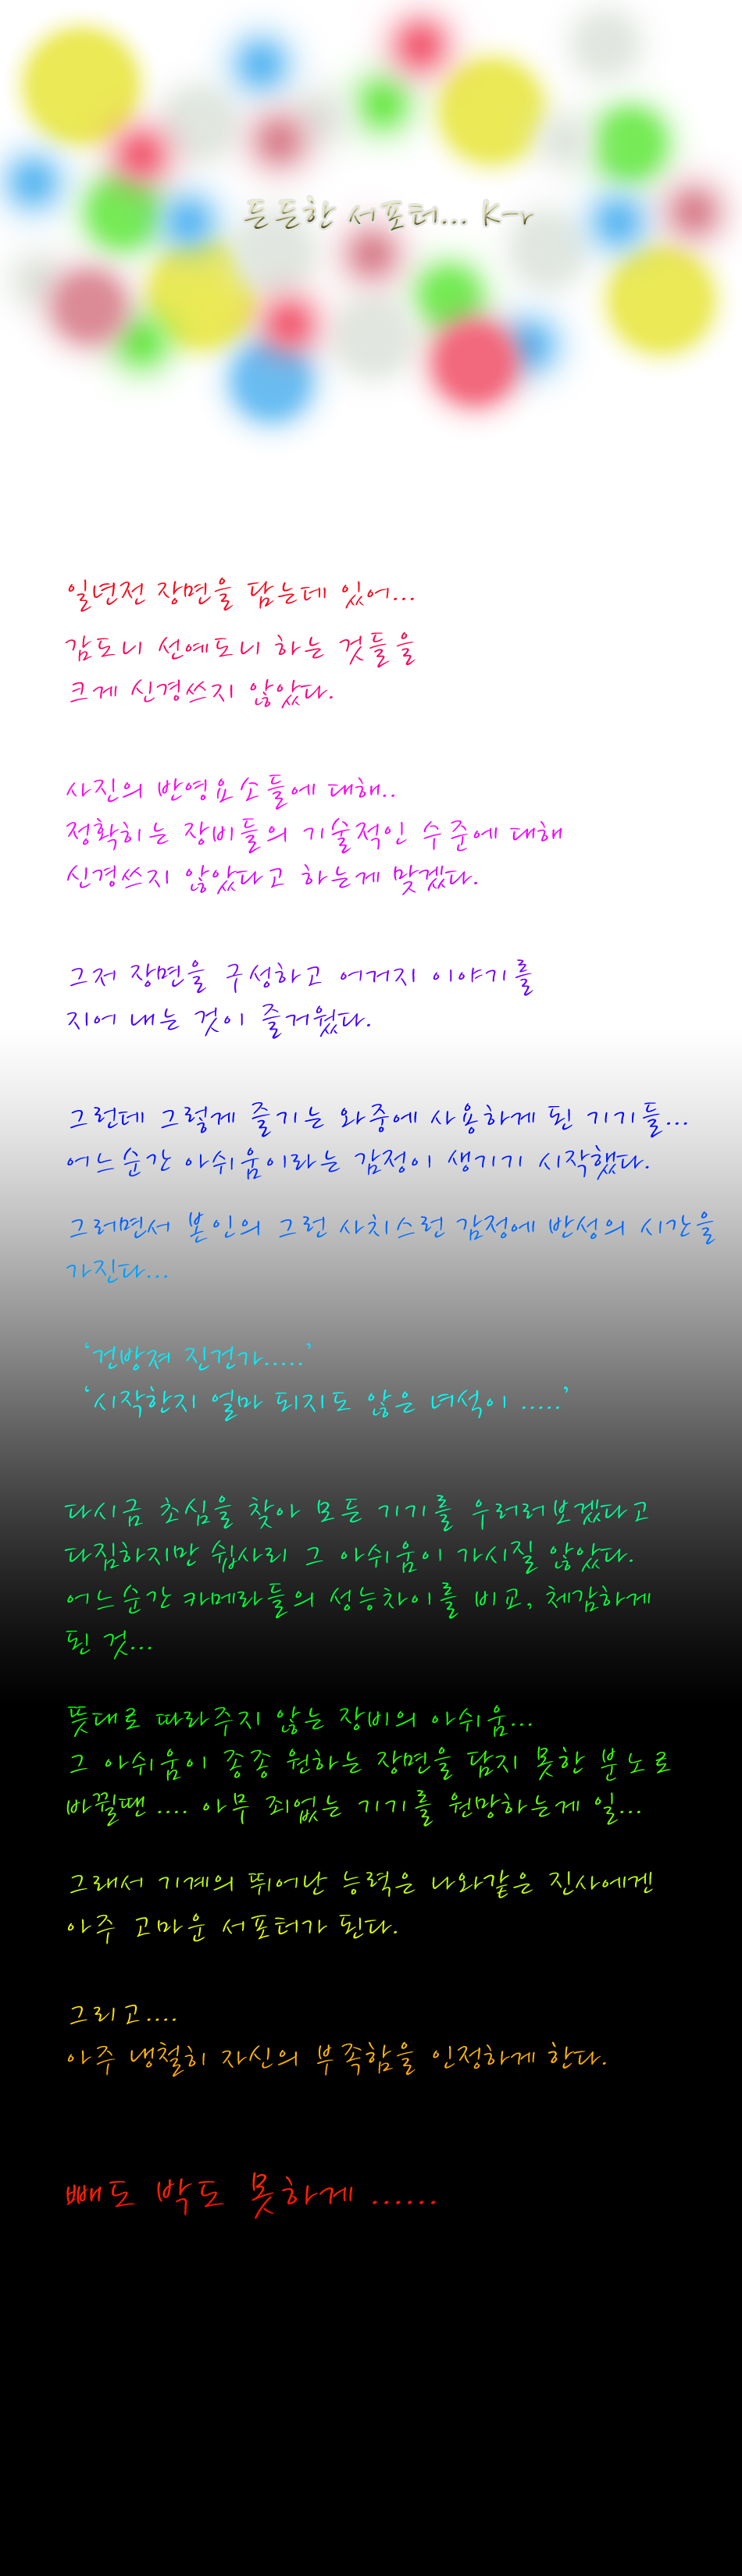 든든한 서포터... K-r
일년전 장면을 담는데 있어...
감도니 선예도니 하는 것들을
크게 신경쓰지 않았다.
사진의 반영요소들에 대해..
정확히는 장비들의 기술적인 수준에 대해
신경쓰지 않았다고 하는게 맞겠다.
그저 장면을 구성하고 어거지 이야기를
지어 내는 것이 즐거웠다.
그런데 그렇게 즐기는 와중에 사용하게 된 기기들...
어느순간 아쉬움이라는 감정이 생기기 시작했다.
그러면서 본인의 그런 사치스런 감정에 반성의 시간을
가진다...
‘건방져 진건가.....’
‘시작한지 얼마 되지도 않은 녀석이 .....’
다시금 초심을 찾아 모든 기기를 우러러보겠다고
다짐하지만 쉽사리 그 아쉬움이 가시질 않았다.
어느순간 카메라들의 성능차이를 비교, 체감하게
된 것...
뜻대로 따라주지 않는 장비의 아쉬움...
그 아쉬움이 종종 원하는 장면을 담지 못한 분노로
바뀔땐 .... 아무 죄없는 기기를 원망하는게 일...
그래서 기계의 뛰어난 능력은 나와같은 진사에겐
아주 고마운 서포터가 된다.
그리고....
아주 냉철히 자신의 부족함을 인정하게 한다.
빼도 박도 못하게 ......